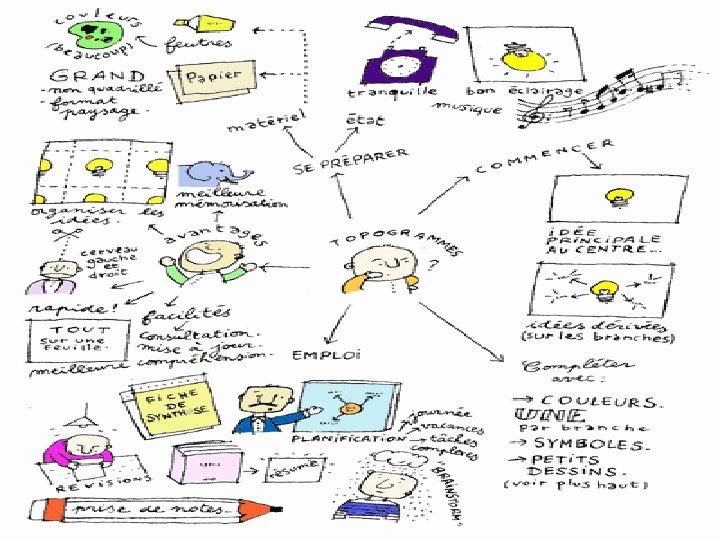 couleurs
(beaucoup)
feutres
GRAND
- non quadrillé
- format
paysage.
Papier
matériel
état
tranquille
bon éclairage
musique
SE PRÉPARER
COMMENCER
TOPOGRAMMES
?
IDÉE
PRINCIPALE
AU CENTRE...
idées dérivées
(sur les branches)
Compléter
avec :
→ COULEURS.
UNE
par branche
→ SYMBOLES.
→ PETITS
DESSINS.
(voir plus haut)
organiser les
idées.
meilleure
mémorisation
avantages
cerveau
gauche
et
droit
rapide!
facilités
TOUT
sur une
feuille.
consultation.
mise à jour.
compréhension.
meilleure
EMPLOI
FICHE
DE
SYNTHÈSE
PLANIFICATION
journée
vacances
tâches
complexes
REVISIONS
résumé
BRAINSTORM
prise de notes.